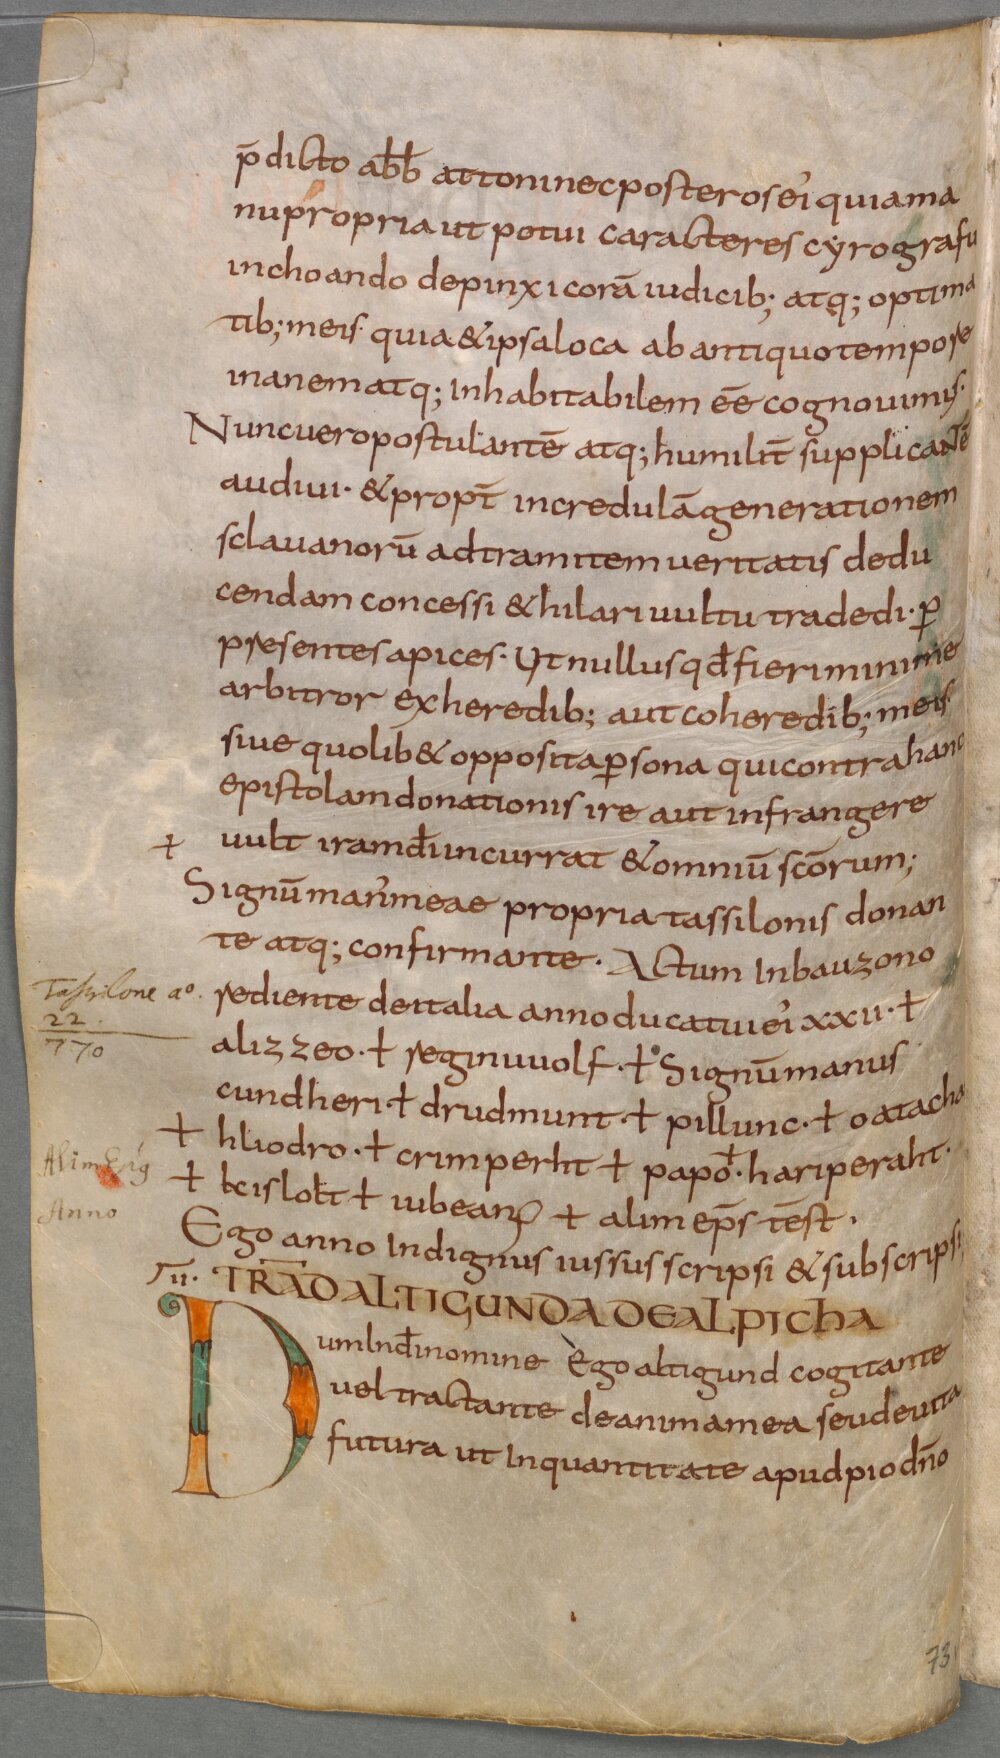 p̄dicto abb̄ attoni nec posteros ei᾽ quia ma
nu propria ut potui caracteres cyrografu
inchoando depinxi corā iudicib; atq; optima
tib; meis· quia & ipsa loca ab antiquo tempore
inanem atq; inhabitabilem eē cognouimus·
Nunc uero postulantē atq; humilit̄ supplicantē
audiui· & propt̄ incredulā generationem
sclauanorū ad tramitem ueritatis dedu
cendam concessi & hilari uultu tradedi· ꝑ
presentes apices· Ut nullus qđ fieri minime
arbitror ex heredib; aut coheredib; meis·
siue quolib& opposita ꝑsona qui contra hanc
epistolam donationis ire aut infrangere
+ uult iram dī incurrat & omniū scōrum;
Signū man᾽ meae propria tassilonis donan
te atq; confirmante· Actum In bauzono
Tassilone aº. rediente de italia anno ducatui ei᾽ xxii· +
22.
770
alizzeo· + reginuuolf· + Signū manus
cundheri· + drudmunt· + pillunc· + oatacha
+ hliodro· + crimperht + papo· + hariperaht·
Alim Epg
+ keislolt + iubeanꝰ + alim ep̄s tēst·
Anno
Ego anno Indignus iussus scripsi & subscripsi;
TRAD ALTIGUNDA DE ALPICHA
Dum In dī nomine Ego altigund cogitante
uel tractante de anima mea seu de uita
futura ut In quantitate apud pio dn̄o
73